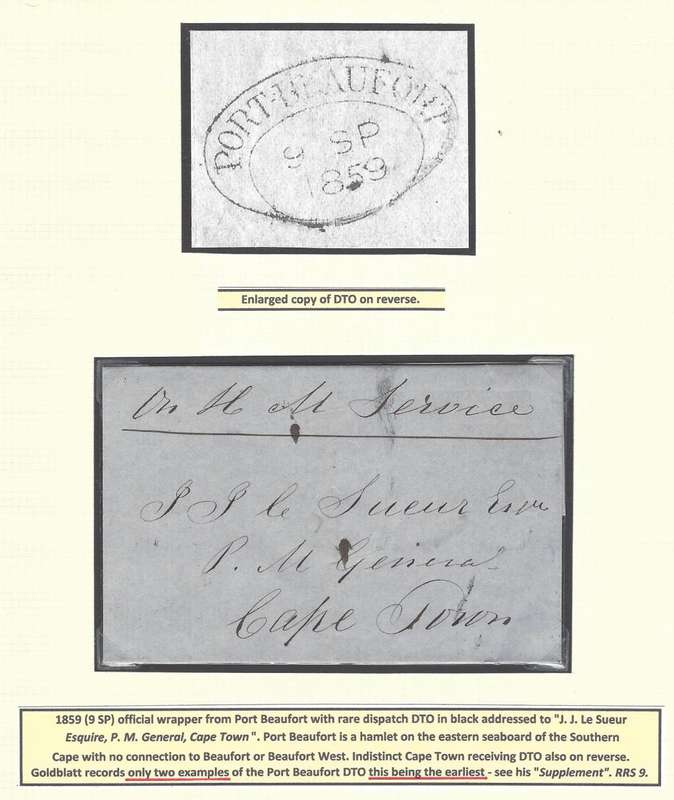 PORT-BEAUFORT
9 SP
1859
Enlarged copy of DTO on reverse.
On H M Service
J J le Sueur Esqre
P. M General
Cape Town
1859 (9 SP) official wrapper from Port Beaufort with rare dispatch DTO in black addressed to "J. J. Le Sueur
Esquire, P. M. General, Cape Town". Port Beaufort is a hamlet on the eastern seaboard of the Southern
Cape with no connection to Beaufort or Beaufort West. Indistinct Cape Town receiving DTO also on reverse.
Goldblatt records only two examples of the Port Beaufort DTO this being the earliest - see his "Supplement". RRS 9.